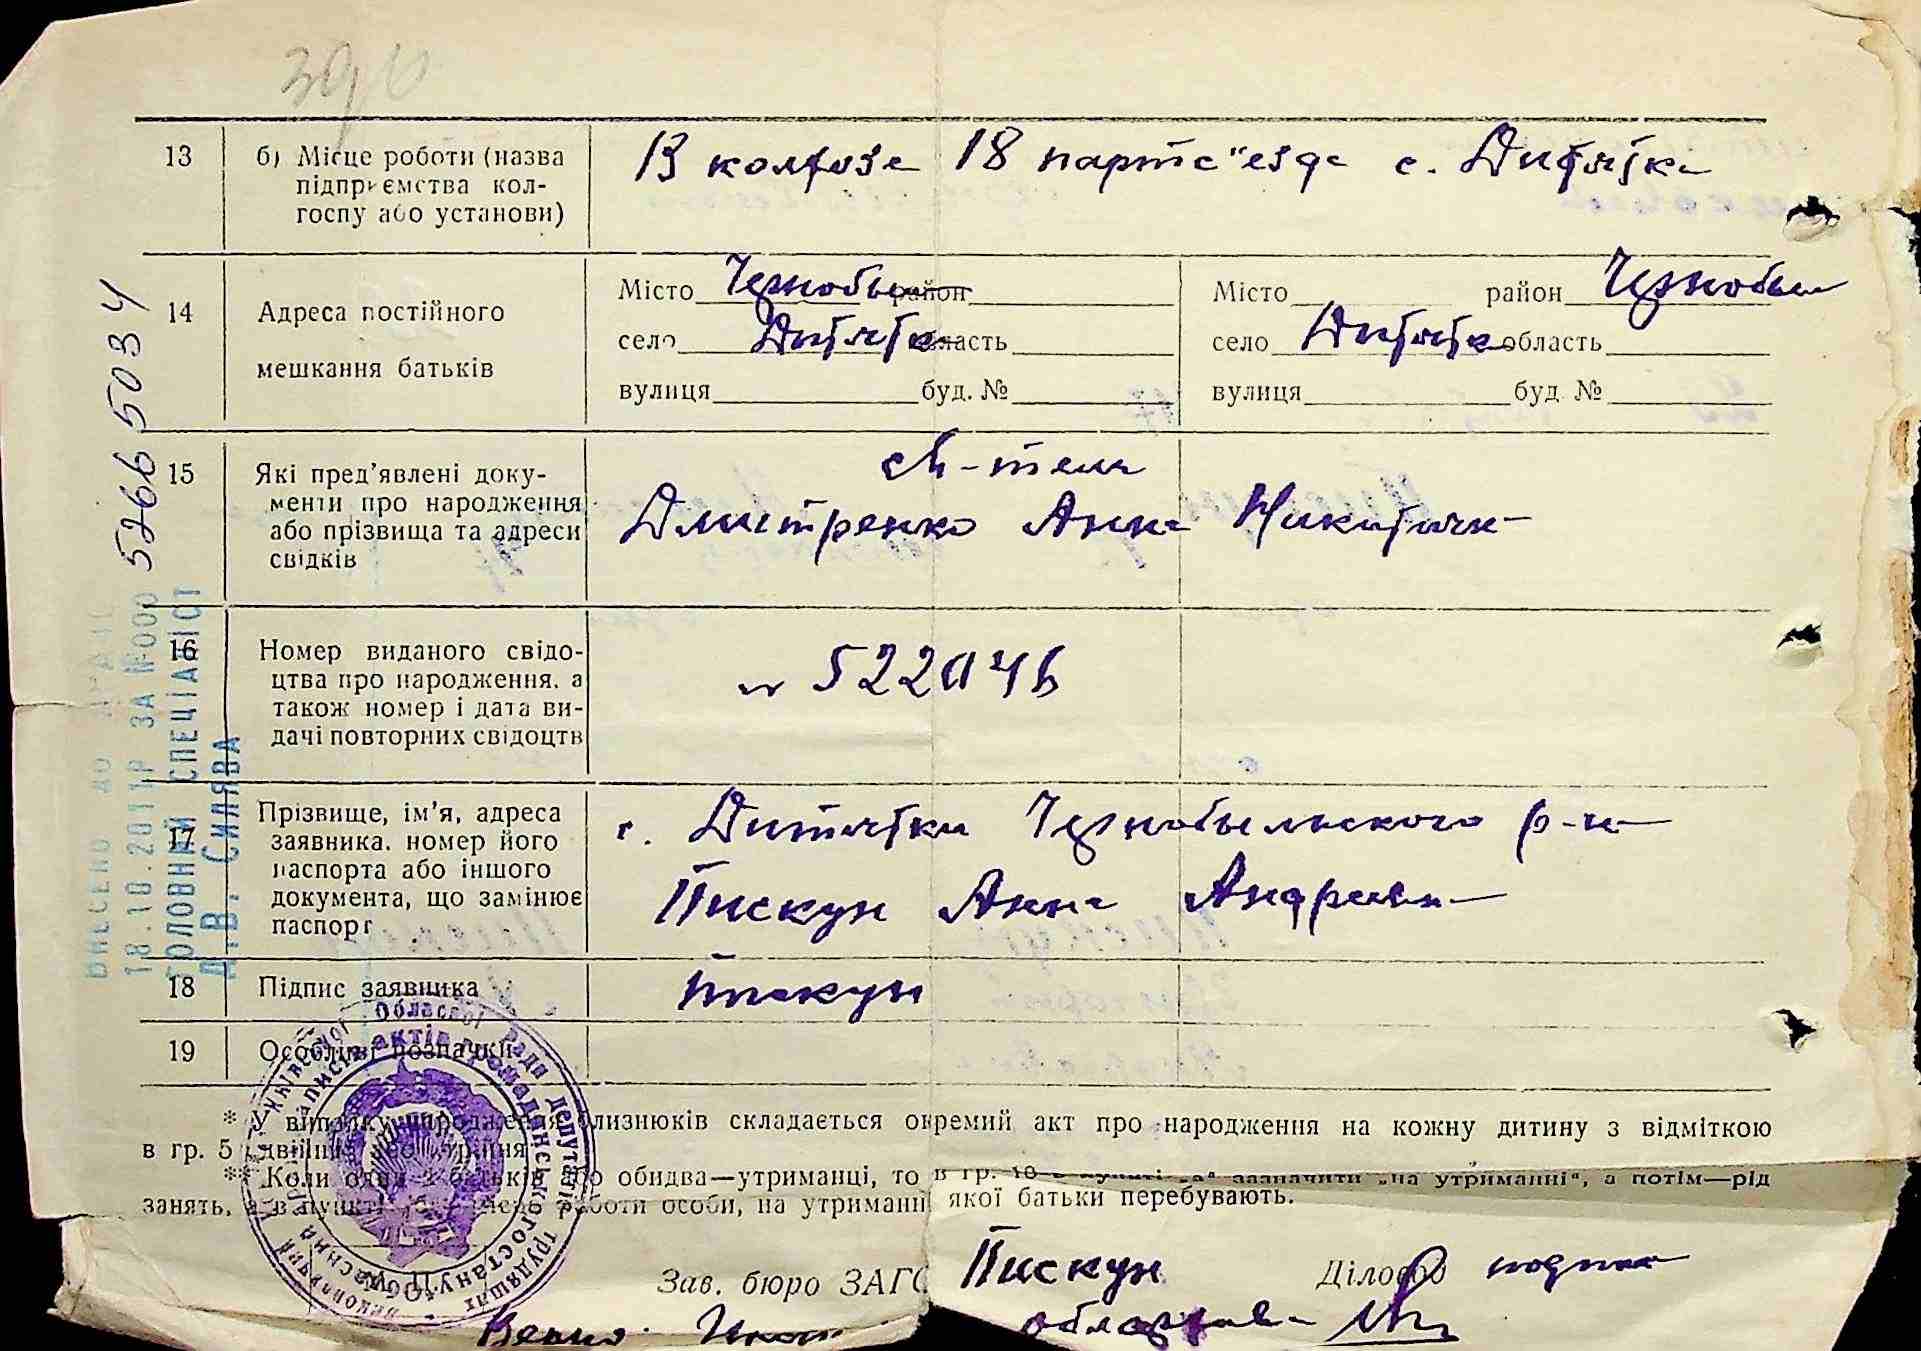 13
б) Місце роботи (назва
підприємства кол-
госпу або установи)
В колхозе 18 партс"езда с. Дитятки
14
Адреса постійного
мешкання батьків
Місто Чернобы район
село Дитятк область
вулиця буд. №
Місто район Чернобы
село Дитятк область
вулиця буд №
15
Які пред'явлені доку-
менти про народження
або прізвища та адреси
свідків
Дмитренко Анна Никитична
16
Номер виданого свідо-
цтва про народження, а
також номер і дата ви-
дачі повторних свідоцтв
522046
17
Прізвище, ім'я, адреса
заявника, номер його
паспорта або іншого
документа, що замінює
паспорт
с. Дитятки Чернобыльского р-на
Пискун Анна Андреевна
18
Підпис заявника
Пискун
19
Особливі позначки
* У випадку народження близнюків складається окремий акт про народження на кожну дитину з відміткою
в гр. 5 „двійня" або „трійня"
** Коли один з батьків або обидва—утриманці, то в гр. 10 в пункті „а" зазначити „на утриманні", а потім—рід
занять, а в пункті „б" місце роботи особи, на утриманні якої батьки перебувають.
Зав. бюро ЗАГС
Пискун
Діловод
подпис
Верно:
ВНЕСЕНО ДО ДРАЦС
18.10.2011Р ЗА №000 5266 5034
ГОЛОВНИЙ СПЕЦІАЛІСТ
Д.В. СИЛЯВА